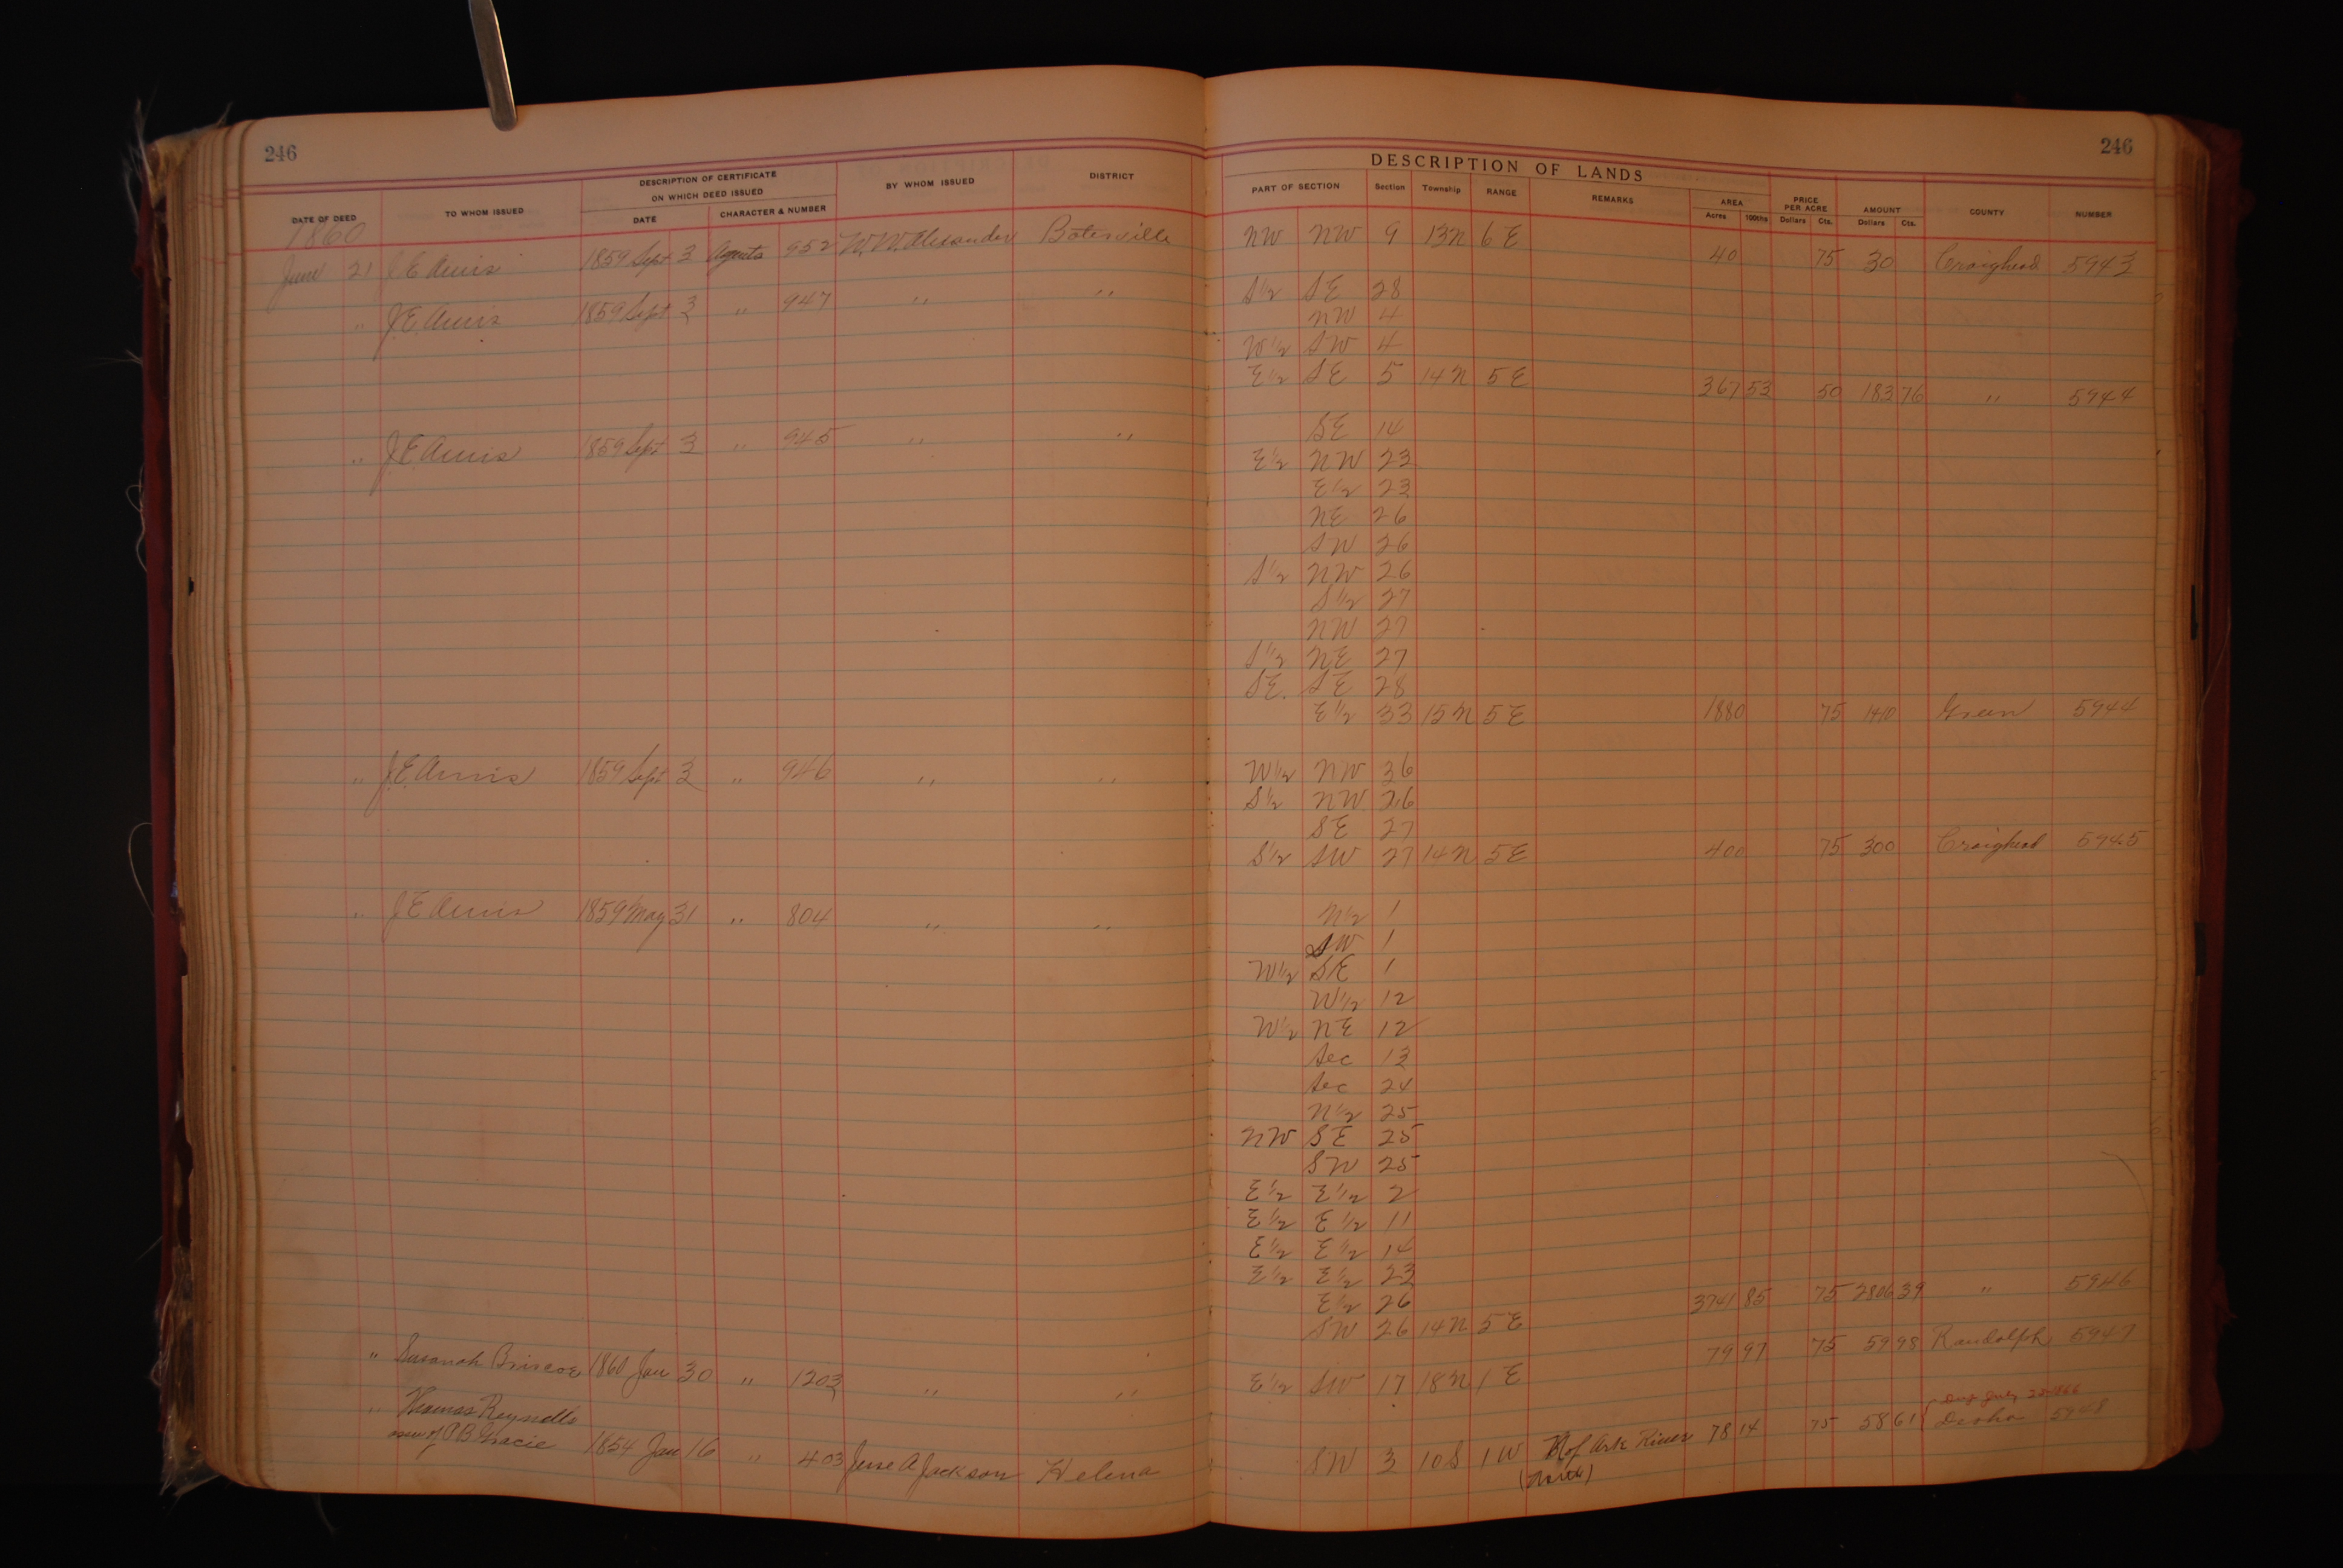 246
246
DESCRIPTION OF LANDS
DATE OF DEED TO WHOM ISSUED DESCRIPTION OF CERTIFICATE ON WHICH DEED ISSUED DATE CHARACTER & NUMBER BY WHOM ISSUED DISTRICT PART OF SECTION Section Township RANGE REMARKS AREA Acres 100ths PRICE PER ACRE Dollars Cts. AMOUNT Dollars Cts. COUNTY NUMBER
1860
June 21 J E Amis 1859 Sept 3 Agents 952 W. W. Alexander Batesville NW NW 9 13N 6E 40 75 30 Craighead 5943
" J. E. Amis 1859 Sept 3 " 947 " " S 1/2 SE 28
NW 4
W 1/2 SW 4
E 1/2 SE 5 14N 5E 367 53 50 183 76 " 5944
" J. E. Amis 1859 Sept 3 " 945 " " SE 14
E 1/2 NW 23
E 1/2 23
NE 26
SW 26
S 1/2 NW 26
S 1/2 27
NW 27
S 1/2 NE 27
SE. SE 28
E 1/2 33 15N 5E 1880 75 1410 Green 5944
" J. E. Amis 1859 Sept 3 " 946 " " W 1/2 NW 36
S 1/2 NW 26
SE 27
S 1/2 SW 27 14N 5E 400 75 300 Craighead 5945
" J E Amis 1859 May 31 " 804 " " N 1/2 1
SW 1
W 1/2 SE 1
W 1/2 12
W 1/2 NE 12
Sec 13
Sec 24
N 1/2 25
NW SE 25
SW 25
E 1/2 E 1/2 2
E 1/2 E 1/2 11
E 1/2 E 1/2 14
E 1/2 E 1/2 23
E 1/2 26
SW 26 14N 5E 3741 85 75 2806 39 " 5946
" Susanah Briscoe 1860 Jan 30 " 1203 " " E 1/2 SW 17 18N 1E 79 97 75 59 98 Randolph 5947
" Thomas Reynolds
assee of P B Gracie 1854 Jan 16 " 403 Jesse A Jackson Helena SW 3 10S 1W N of Ark River 78 14 75 58 61 Desha 5948
(North)
Dup July